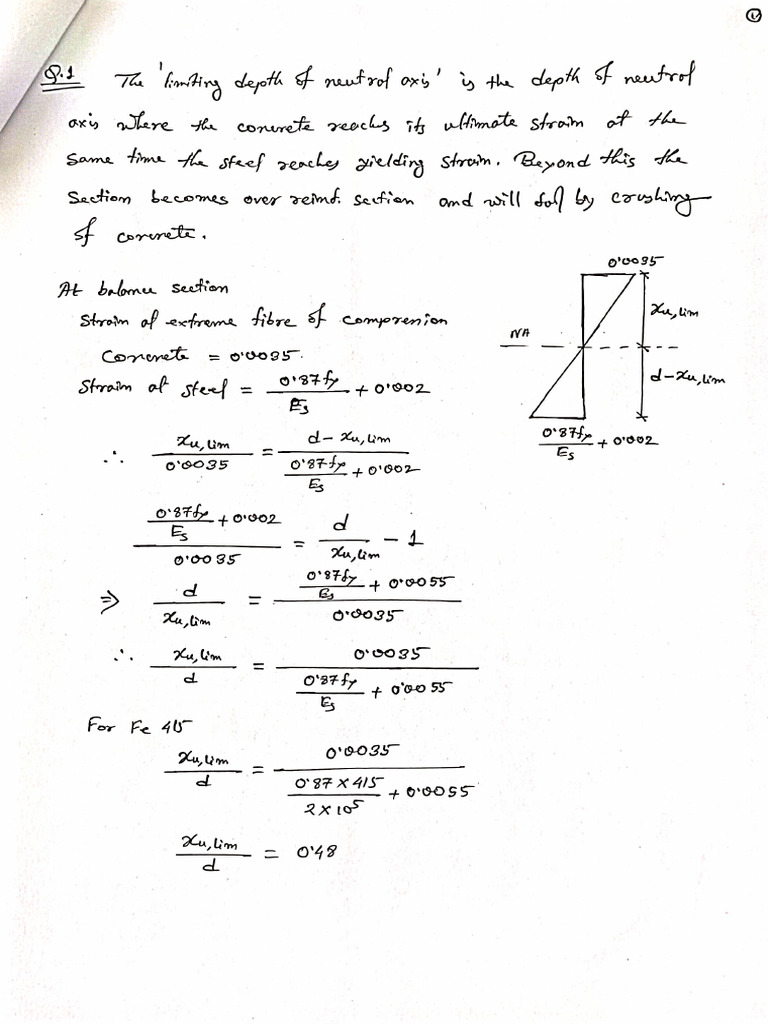 1
Q.1 The 'limiting depth of neutral axis' is the depth of neutral
axis where the concrete reaches its ultimate strain at the
same time the steel reaches yielding strain. Beyond this the
section becomes over reinf. section and will fail by crushing
of concrete.
At balance section
Strain at extreme fibre of compression
Concrete = 0.0035.
Strain at steel = 0.87fy/Es + 0.002
0.0035
xu,lim
NA
d-xu,lim
0.87fy/Es + 0.002
∴ xu,lim/0.0035 = (d - xu,lim)/(0.87fy/Es + 0.002)
(0.87fy/Es + 0.002)/0.0035 = d/xu,lim - 1
⇒ d/xu,lim = (0.87fy/Es + 0.0055)/0.0035
∴ xu,lim/d = 0.0035/(0.87fy/Es + 0.0055)
For Fe 415
xu,lim/d = 0.0035/((0.87 × 415)/(2 × 10⁵) + 0.0055)
xu,lim/d = 0.48